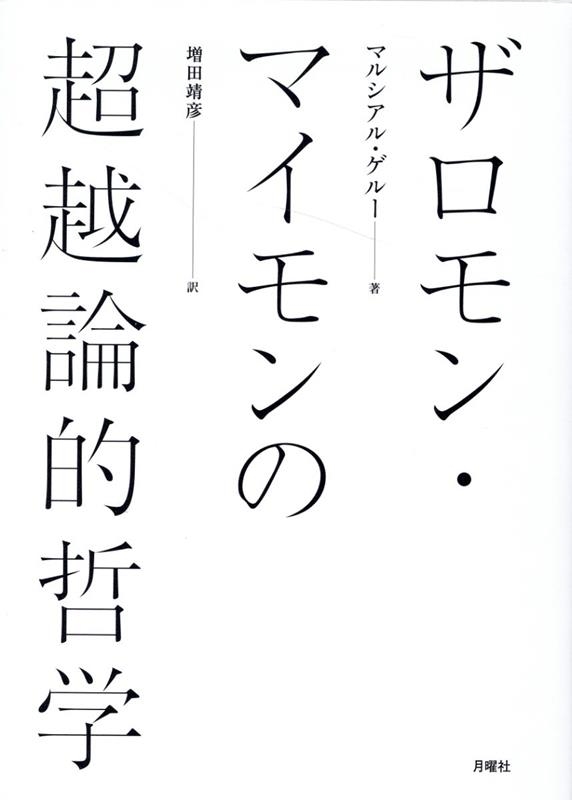 ザロモン・
マイモンの
超越論的哲学
マルシアル・ゲルー───著
増田靖彦───訳
月曜社